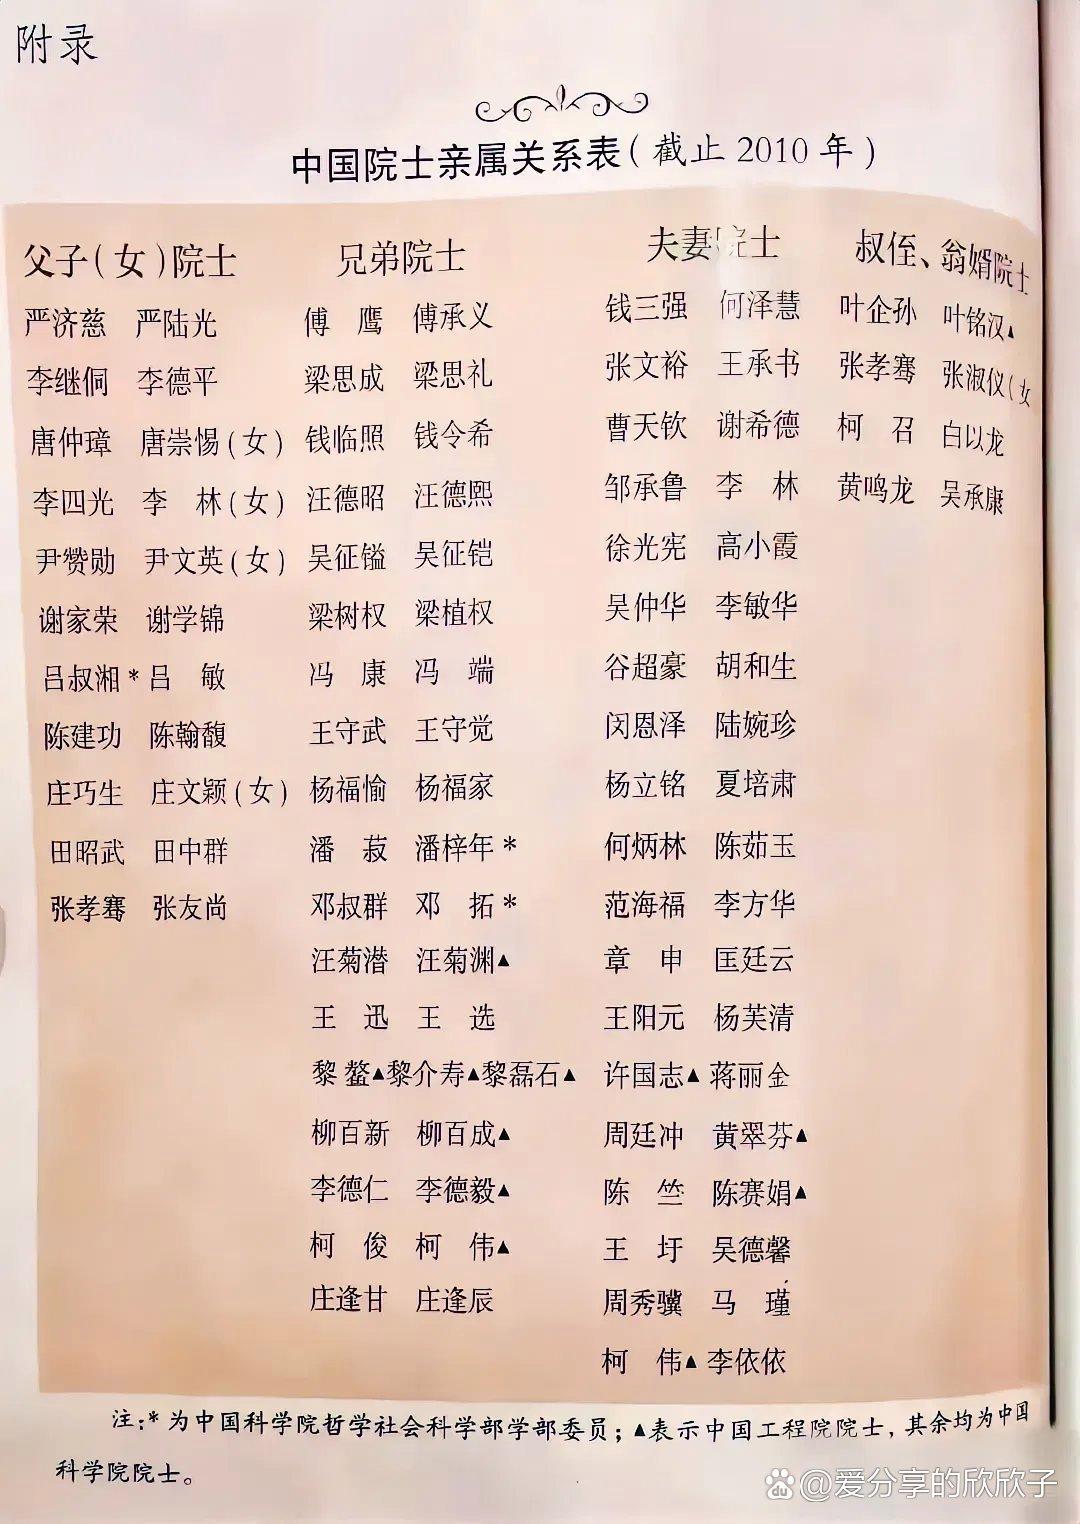 附录
中国院士亲属关系表(截止2010年)
父子(女)院士
严济慈 严陆光
李继侗 李德平
唐仲璋 唐崇惕(女)
李四光 李 林(女)
尹赞勋 尹文英(女)
谢家荣 谢学锦
吕叔湘*吕 敏
陈建功 陈翰馥
庄巧生 庄文颖(女)
田昭武 田中群
张孝骞 张友尚
兄弟院士
傅 鹰 傅承义
梁思成 梁思礼
钱临照 钱令希
汪德昭 汪德熙
吴征镒 吴征铠
梁树权 梁植权
冯 康 冯 端
王守武 王守觉
杨福愉 杨福家
潘 菽 潘梓年*
邓叔群 邓 拓*
汪菊潜 汪菊渊▲
王 迅 王 选
黎 鳌▲黎介寿▲黎磊石▲
柳百新 柳百成▲
李德仁 李德毅▲
柯 俊 柯 伟▲
庄逢甘 庄逢辰
夫妻院士
钱三强 何泽慧
张文裕 王承书
曹天钦 谢希德
邹承鲁 李 林
徐光宪 高小霞
吴仲华 李敏华
谷超豪 胡和生
闵恩泽 陆婉珍
杨立铭 夏培肃
何炳林 陈茹玉
范海福 李方华
章 申 匡廷云
王阳元 杨芙清
许国志▲蒋丽金
周廷冲 黄翠芬▲
陈 竺 陈赛娟▲
王 圩 吴德馨
周秀骥 马 瑾
柯 伟▲李依依
叔侄、翁婿院士
叶企孙 叶铭汉▲
张孝骞 张淑仪(女
柯 召 白以龙
黄鸣龙 吴承康
注:*为中国科学院哲学社会科学部学部委员;▲表示中国工程院院士,其余均为中国
科学院院士。
Baidu@爱分享的欣欣子